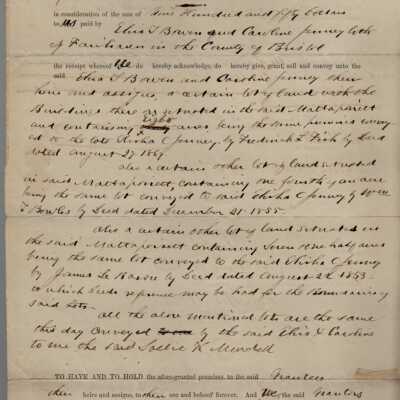 in consideration of the sum of Nine Hundred and fifty Dollars
to us paid by Elias T Bowen and Caroline Jenney both
of Fairhaven in the County of Bristol
the receipt whereof We do hereby acknowledge, do hereby give, grant, sell and convey unto the
said Elias T Bowen and Caroline Jenney their
heirs and assigns, a certain lot of land with the
Buildings thereon situated in the said Mattapoisett
and containing eight acres, being the same premises convey
ed to the late Elisha C Jenney, by Frederick L Fish by Deed
dated August 27 1867
also a certain other lot of land situated
in said Mattapoisett, containing one fourth of an acre
being the same lot conveyed to said Elisha C Jenney by
Bowles by Deed dated December 21 1855
Also a certain other lot of land situated in
the said Mattapoisett containing Seven & one half acres
being the same lot conveyed to the said Elisha C Jenney
by James Le Baron by Deed dated August 22 1853
to which Deeds reference may be had for the Boundaries of
said Lots
All the above mentioned lots are the same
this day conveyed by the said Elias & Caroline
to me the said W Mendell
TO HAVE AND TO HOLD the afore-granted premises, to the said Grantees
their heirs and assigns, to their use and behoof forever. And We the said Grantors